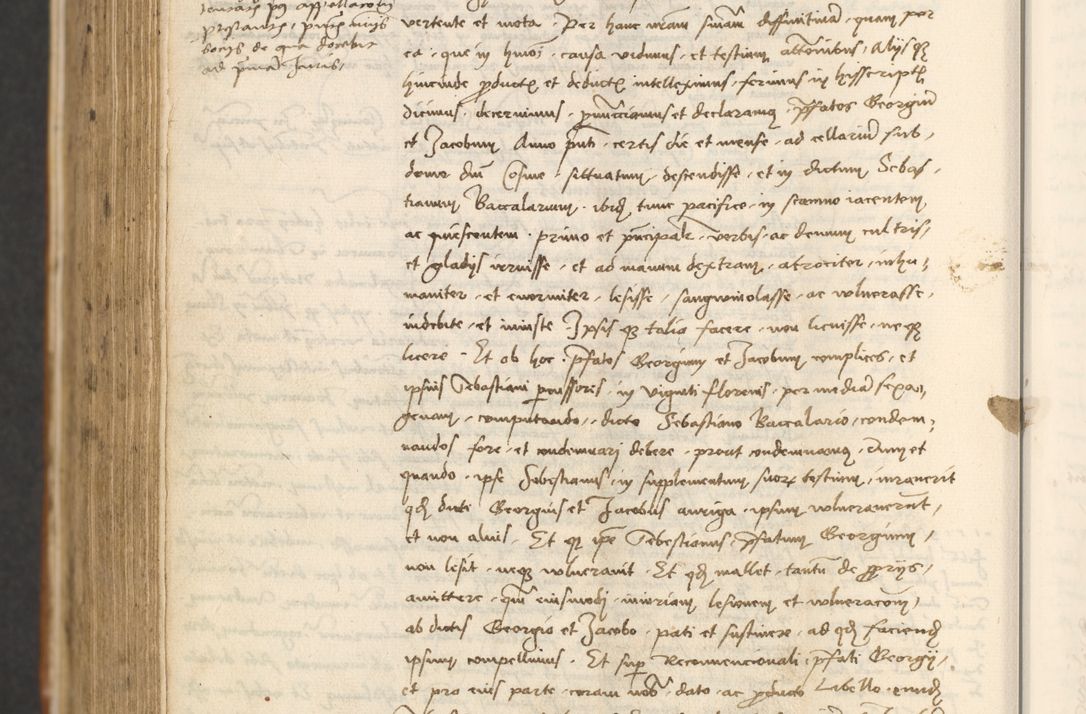 prestando, post huius
ad primam Juris,
vertente et mota. Per hanc nostram sententiam diffinitivam, quam per
ea, que in hmoi causa vidimus, et testium attestationibus, Aliisque
hincinde productis et deductis intelleximus, ferimus in hijs scriptis
dicimus, decernimus, pronunciamus et declaramus, prefatos Georgium
et Jacobum, Anno presenti, certis die et mense, ad cellarium sub
domo dni Cosme, situatum, descendisse, et in dictum Sebas-
tianum Baccalarium, ibidem tunc pacifice, in scamno iacentem
ac quiescentem, primo et principaliter, verbis, ac demum cultris,
et gladijs irruisse, et ad manum dextram, atrociter, inhu-
maniter, et enormiter, lesisse, sangwinolasse, ac vulnerasse,
indebite, et iniuste. Ipsis que talia facere, non licuisse, neque
licere. Et ob hoc, prefatos Georgium et Jacobum complices, et
ipsius Sebastiani percussores, in viginti florenis, per mediam sexa-
genam, computando, dicto Sebastiano Baccalario, condem-
nandos fore, et condemnari debere, prout condemnamus, Dum et
quando, ipse Sebestianus, in supplementum suorum testium, iuraverit
quod dicti Georgius et Jacobus auriga, ipsum vulneraverunt,
et non alius. Et quod ipse Sebestianus, prefatum Georgium,
non lesit, neque vulneravit. Et quod mallet, tantum de proprijs,
amittere, quam eiusmodi, iniuriam, lesionem et vulneracionem,
ab dictis Georgio et Jacobo, pati et sustinere, ad quod faciendum
ipsum compellimus. Et super Reconvencionali, prefati Georgij,
et pro eius parte, coram nobis, dato, ac producto Libello, eundem